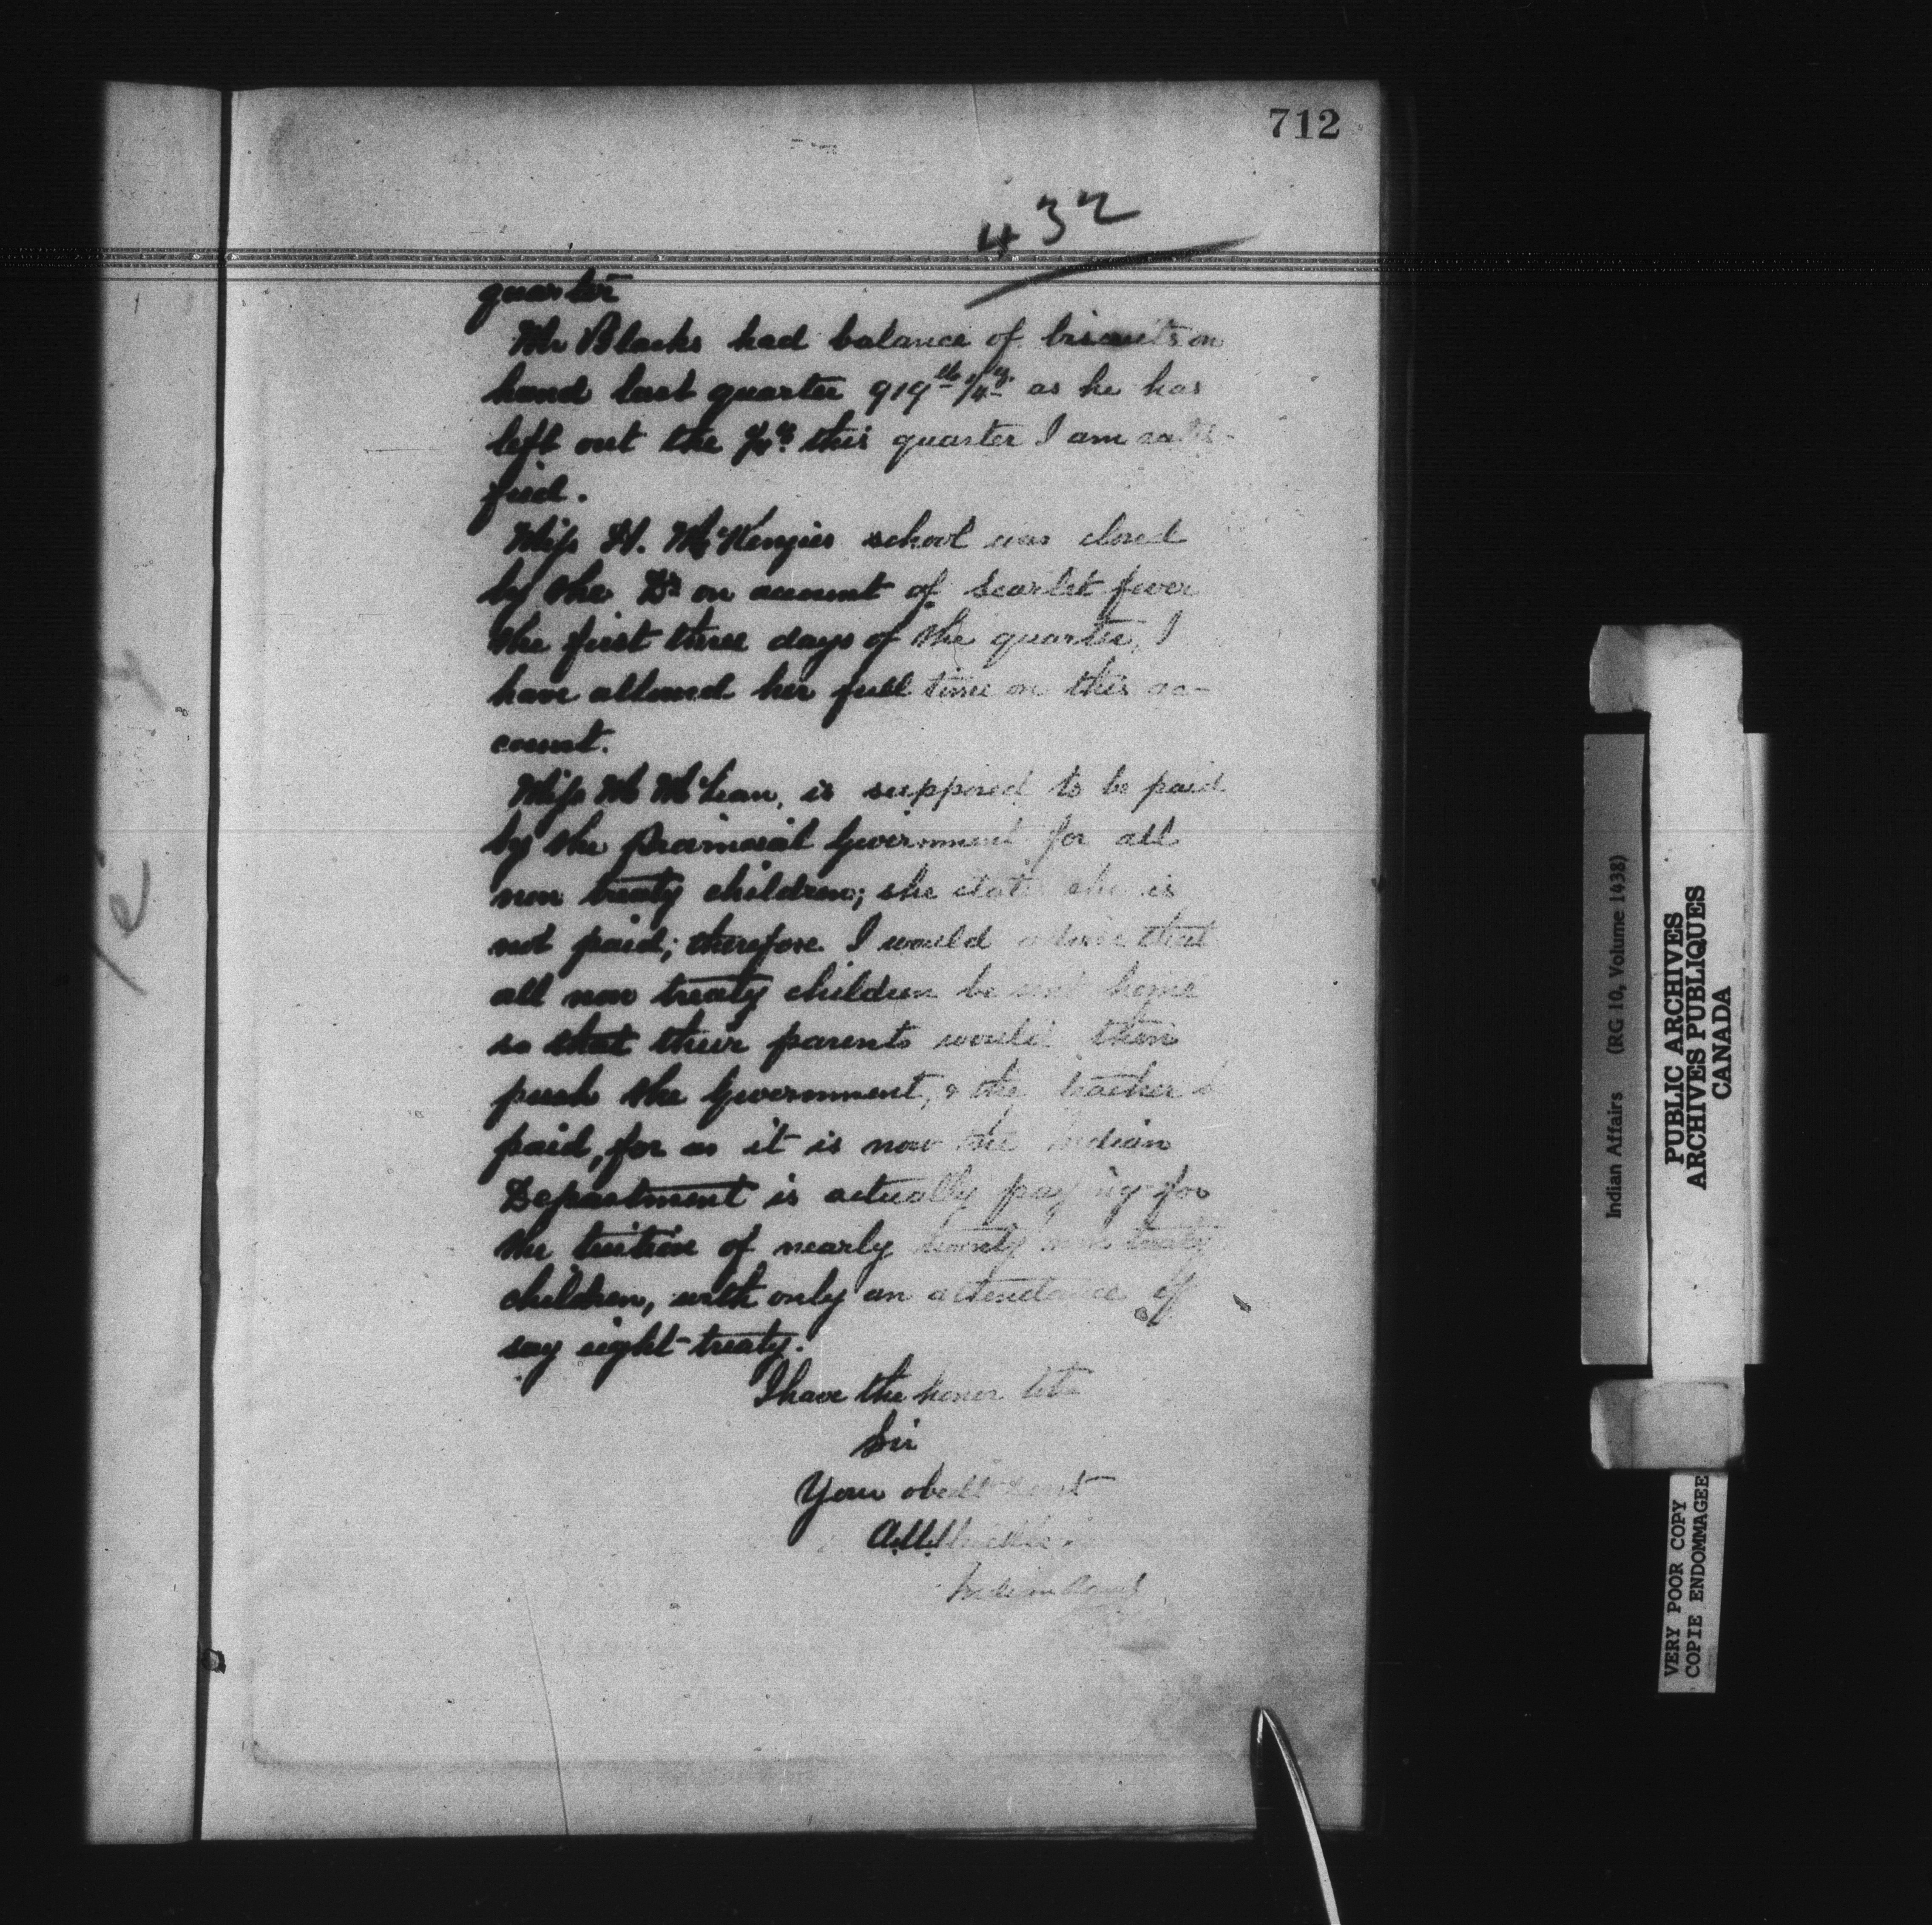 712
432
quarter
Mr Blacks had balance of biscuits on
hand last quarter 919 lb as he has
left out the this quarter I am satis-
fied.
Miss H. McKenzies school was closed
by the Dr on account of Scarlet fever
the first three days of the quarter, I
have allowed her full time on this ac-
count.
Miss M McLean, is supposed to be paid
by the Provincial Government for all
non treaty children; she states she is
not paid; therefore I would advise that
all non treaty children be sent home
so that their parents would then
push the Government, & the teacher be
paid, for as it is now the Indian
Department is actually paying for
the tuition of nearly twenty non treaty
children, with only an attendance of
say eight treaty.
I have the honor to be
Sir
Your obedt servt
Indian Agent
Indian Affairs (RG 10, Volume 1438)
PUBLIC ARCHIVES
ARCHIVES PUBLIQUES
CANADA
VERY POOR COPY
COPIE ENDOMMAGEE